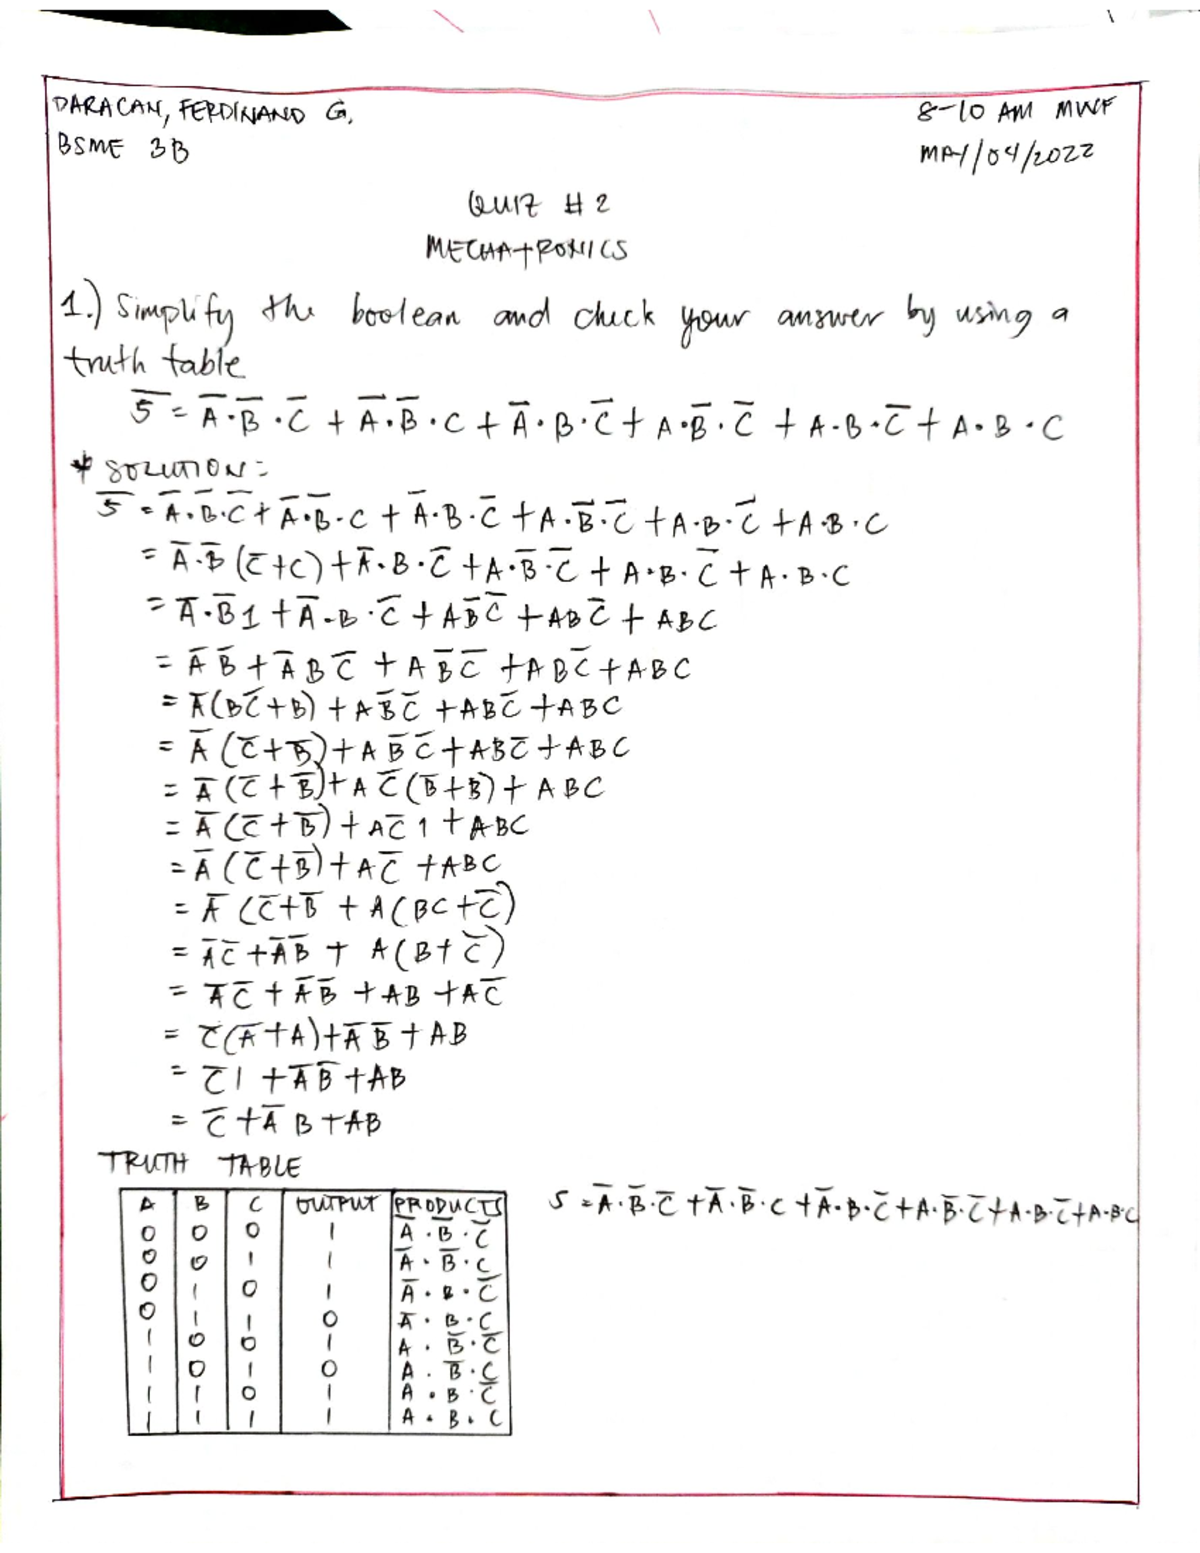 DARACAN, FERDINAND G.
8-10 AM MWF
BSME 3B
MAY/04/2022
QUIZ # 2
MECHATRONICS
1.) Simplify the boolean and check your answer by using a
truth table
S̅ = A̅·B̅·C̅ + A̅·B̅·C + A̅·B·C̅ + A·B̅·C̅ + A·B·C̅ + A·B·C
* SOLUTION:
S̅ = A̅·B̅·C̅ + A̅·B̅·C + A̅·B·C̅ + A·B̅·C̅ + A·B·C̅ + A·B·C
= A̅·B̅ (C̅+C) + A̅·B·C̅ + A·B̅·C̅ + A·B·C̅ + A·B·C
= A̅·B̅1 + A̅·B·C̅ + AB̅C̅ + ABC̅ + ABC
= A̅B̅ + A̅BC̅ + AB̅C̅ + ABC̅ + ABC
= A̅(BC̅+B) + AB̅C̅ + ABC̅ + ABC
= A̅(C̅+B̅) + AB̅C̅ + ABC̅ + ABC
= A̅(C̅+B̅) + AC̅(B̅+B) + ABC
= A̅(C̅+B̅) + AC̅1 + ABC
= A̅(C̅+B̅) + AC̅ + ABC
= A̅(C̅+B̅ + A(BC+C̅)
= A̅C̅ + A̅B̅ + A(B+C̅)
= A̅C̅ + A̅B̅ + AB + AC̅
= C̅(A̅+A) + A̅B̅ + AB
= C̅1 + A̅B̅ + AB
= C̅ + A̅B + AB
TRUTH TABLE
A B C OUTPUT PRODUCTS
S = A̅·B̅·C̅ + A̅·B̅·C + A̅·B·C̅ + A·B̅·C̅ + A·B·C̅ + A·B·C
0 0 0 1 A̅·B̅·C̅
0 0 1 1 A̅·B̅·C
0 1 0 1 A̅·B·C̅
0 1 1 0 A̅·B·C
1 0 0 1 A·B̅·C̅
1 0 1 0 A·B̅·C
1 1 0 1 A·B·C̅
1 1 1 1 A·B·C